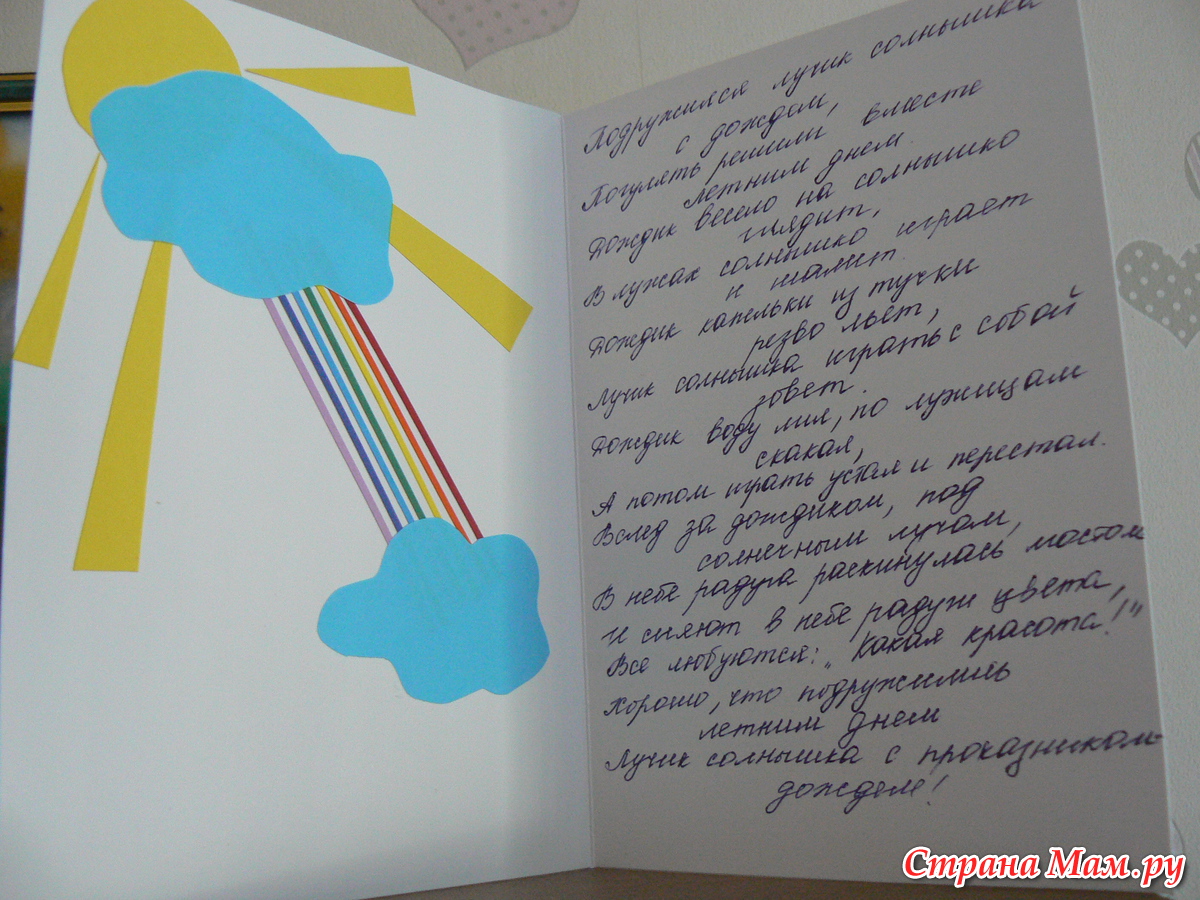 Подружился лучик солнышка
с дождем,
Погулять решили вместе
летним днем.
Дождик весело на солнышко
глядит,
В лужах солнышко играет
и шалит.
Дождик капельки из тучки
резво льет,
Лучик солнышка играть с собой
зовет.
Дождик воду лил, по лужицам
скакал,
А потом играть устал и перестал.
Вслед за дождиком, под
солнечным лучом,
В небе радуга раскинулась мостом
И сияют в небе радуж цвета,
Все любуются: „Какая красота!"
Хорошо, что подружились
летним днем
Лучик солнышка с проказником
дождем!
Страна Мам.ру